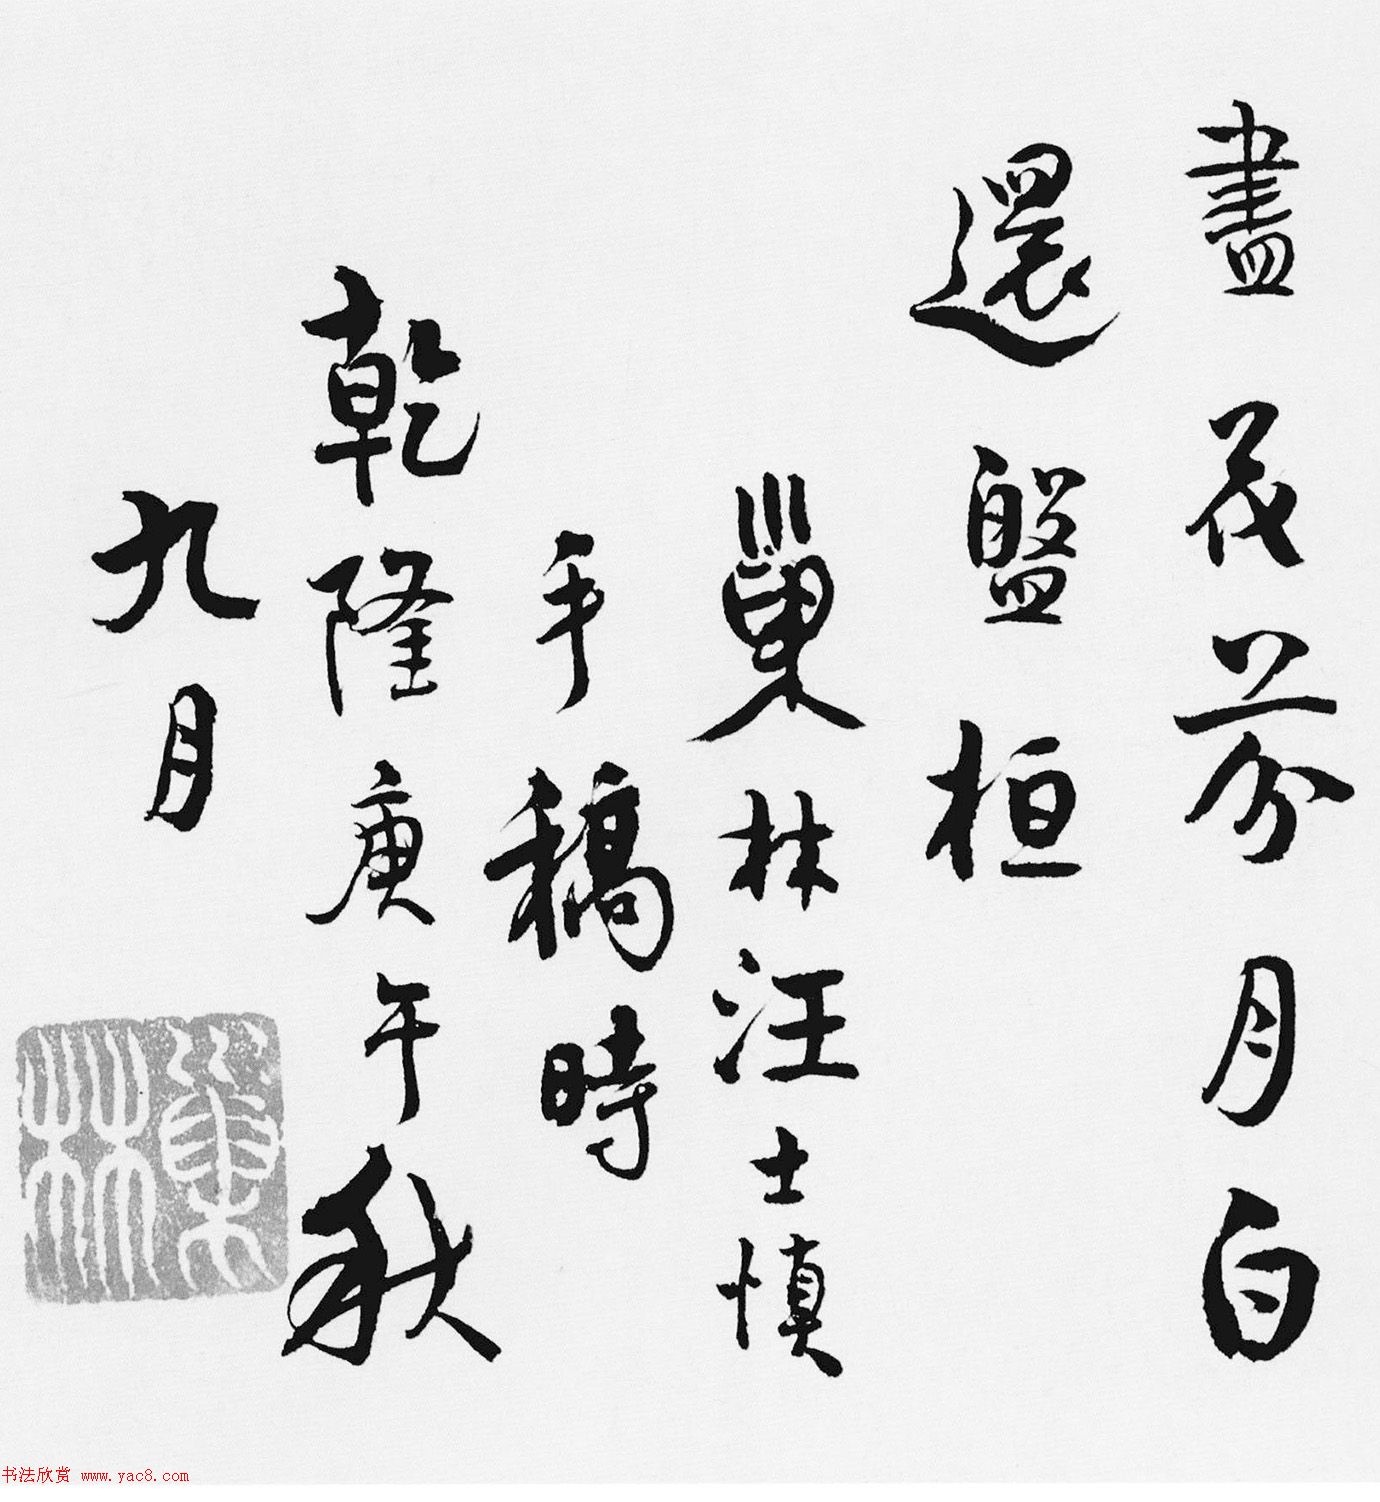 盡茂芬月白
還盤桓
巢林汪士慎
手稿時
乾隆庚午秋
九月
巢林
书法欣赏 www.yac8.com